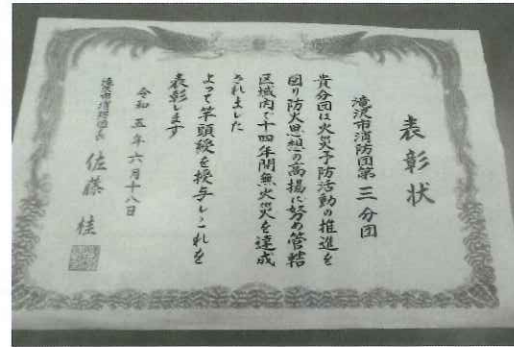 表彰状
滝沢市消防団第三分団
貴分団は火災予防活動の推進を
図り防火思想の高揚に努め管轄
区域内で十四年間無火災を達成
されました
よって竿頭綬を授与しこれを
表彰します
令和五年六月十八日
滝沢市消防団長 佐藤 桂